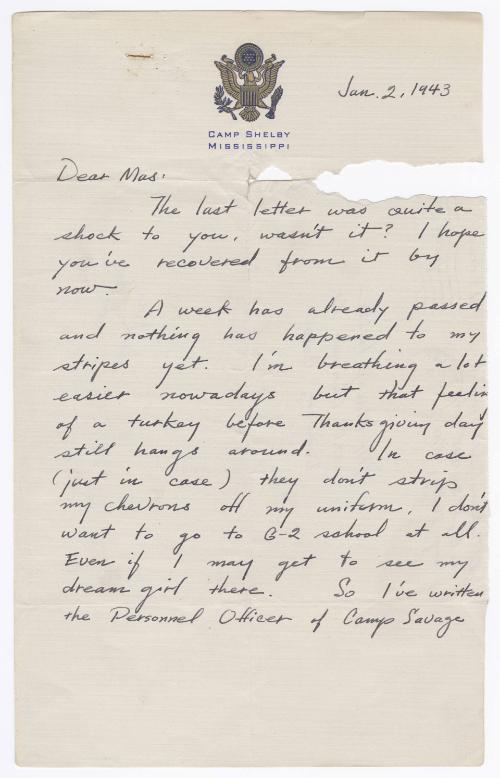 CAMP SHELBY
MISSISSIPPI
Jan. 2, 1943
Dear Mas:
The last letter was quite a
shock to you, wasn't it? I hope
you've recovered from it by
now.
A week has already passed
and nothing has happened to my
stripes yet. I'm breathing a lot
easier nowadays but that feelin
of a turkey before Thanksgiving day
still hangs around. In case
(just in case) they don't strip
my chevrons off my uniform, I don't
want to go to G-2 school at all.
Even if I may get to see my
dream girl there. So I've written
the Personnel Officer of Camp Savage